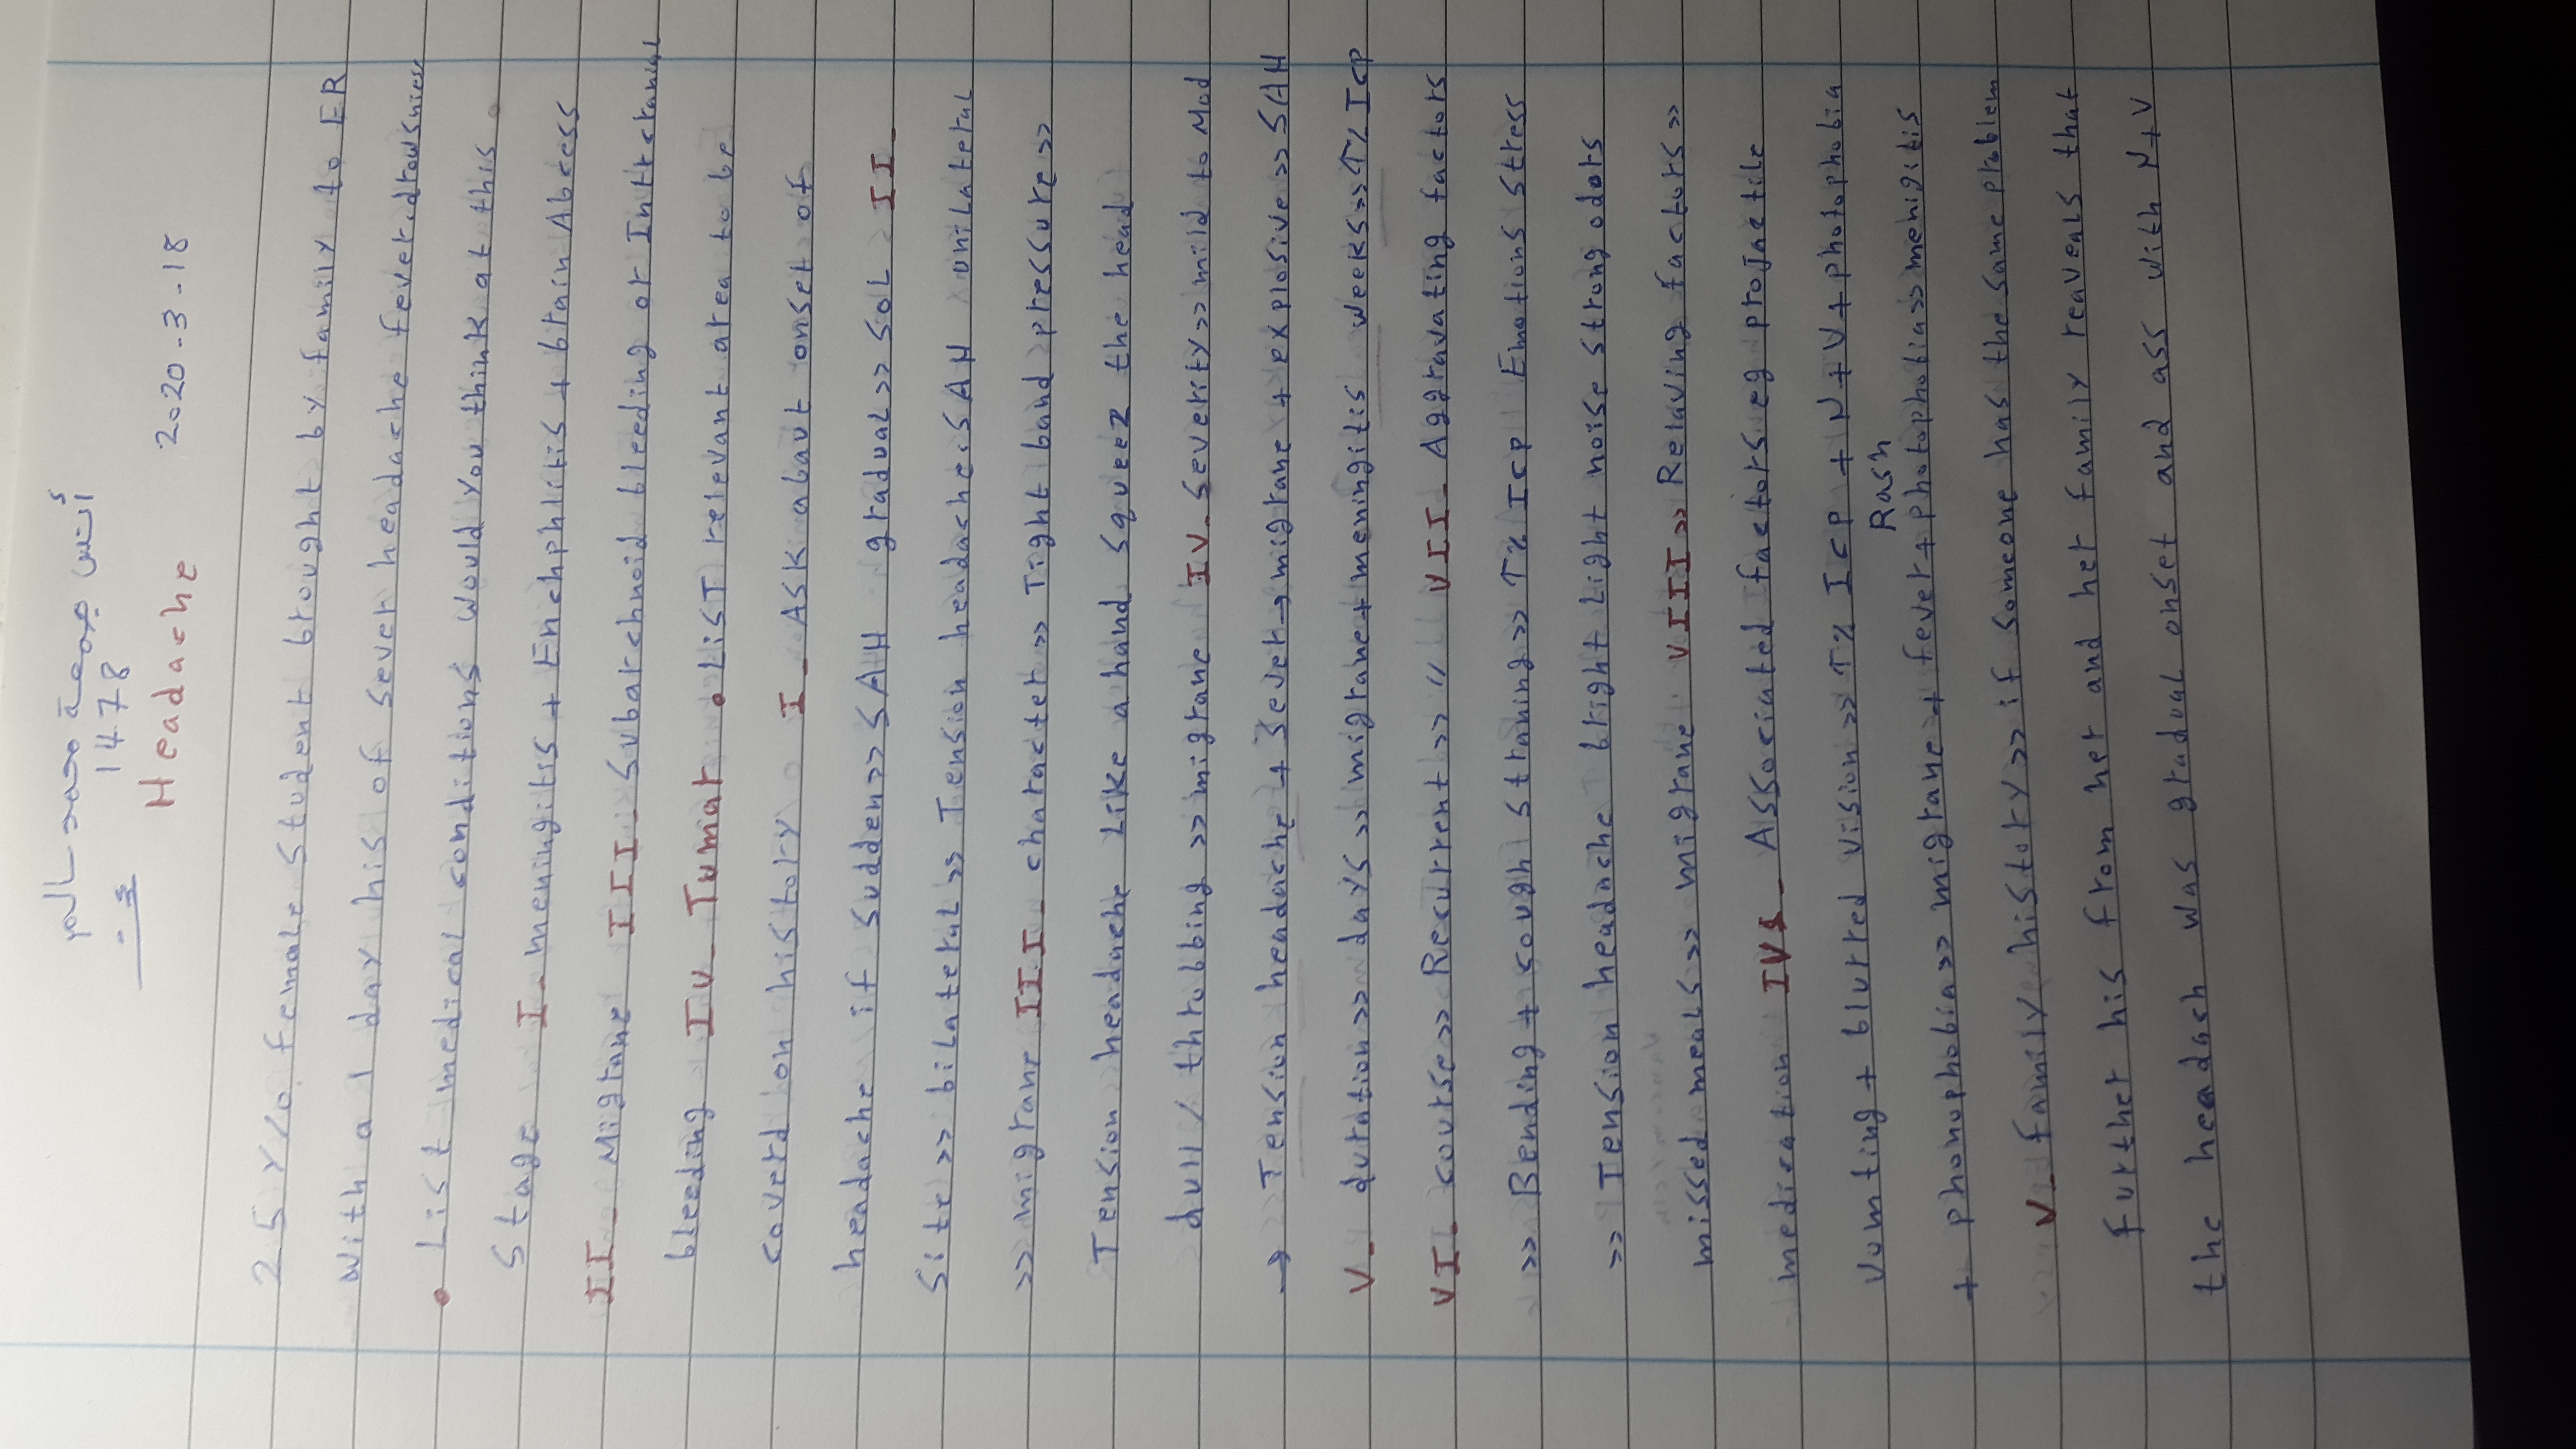 أنس
1478
Headache 2020-3-18
25 Y/O female student brought by family to ER
with a 1 day his of sever headache fever.drowsniess
• List medical conditions would you think at this
stage I- meningitis + Enchphlitis + brain Abcess
II- Migrane III- Subarchnoid bleeding or Intrcranial
bleeding IV- Tumar • List relevant area to be
coverd on history I- ASK about onset of
headache if sudden>> SAH gradual>> SOL II-
Site>> bilateral>> Tension headache.SAH unilateral
>> migrane III- character>> Tight band pressure>>
Tension headache Like a hand squeez the head
dull / throbbing >> migrane IV- Severity>> mild to Mod
→ Tension headache + Sever→ migrane + explosive>> SAH
V- duration>> days >> migrane + meningitis weeks>> ↑% Icp
VI- course>> Recurrent >> " VII- Aggravating factors
>> Bending + cough straning>> ↑% Icp Emotions stress
>> Tension headache bright Light noise strong odors
missed meals>> migrane VIII>> Relaving factors>>
medication IV- Associated factors eg projactile
Vomting + blurred vision>> ↑% Icp + N+V+photophobia
Rash
+ phonophobia>> migrane + fever+photophobia>>menigitis
V- family history>> if someone has the same problem
further his from her and her family reaveals that
the headash was gradual onset and ass with N+V